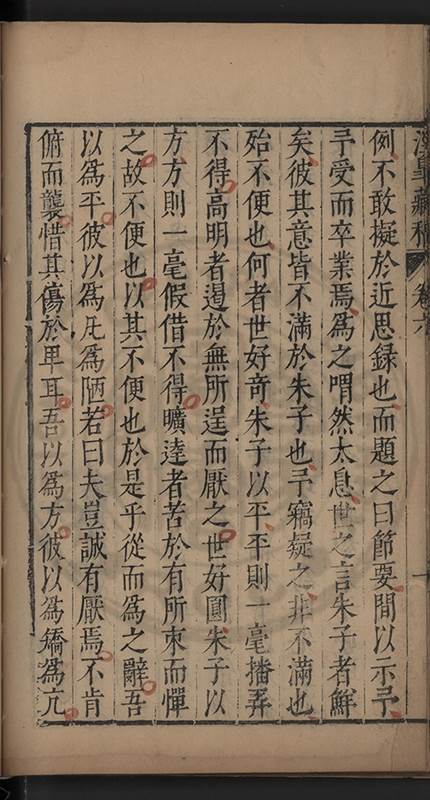 涇臯藏稿 卷六
例不敢擬於近思録也而題之曰節要間以示予
予受而卒業焉爲之喟然太息世之言朱子者鮮
矣彼其意皆不滿於朱子也予竊疑之非不滿也
始不便也何者世好奇朱子以平平則一毫播弄
不得高明者遏於無所逞而厭之世好圓朱子以
方方則一毫假借不得曠達者苦於有所束而憚
之故不便也以其不便也於是乎從而爲之辭吾
以爲平彼以爲凡爲陋若曰夫豈誠有厭焉不肯
俯而襲惜其傷於卑耳吾以爲方彼以爲矯爲亢